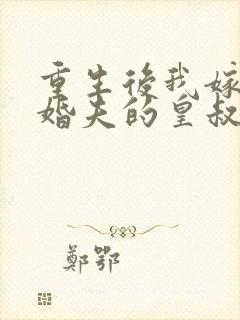 重生後我嫁
婚夫的皇叔
鄭鄂